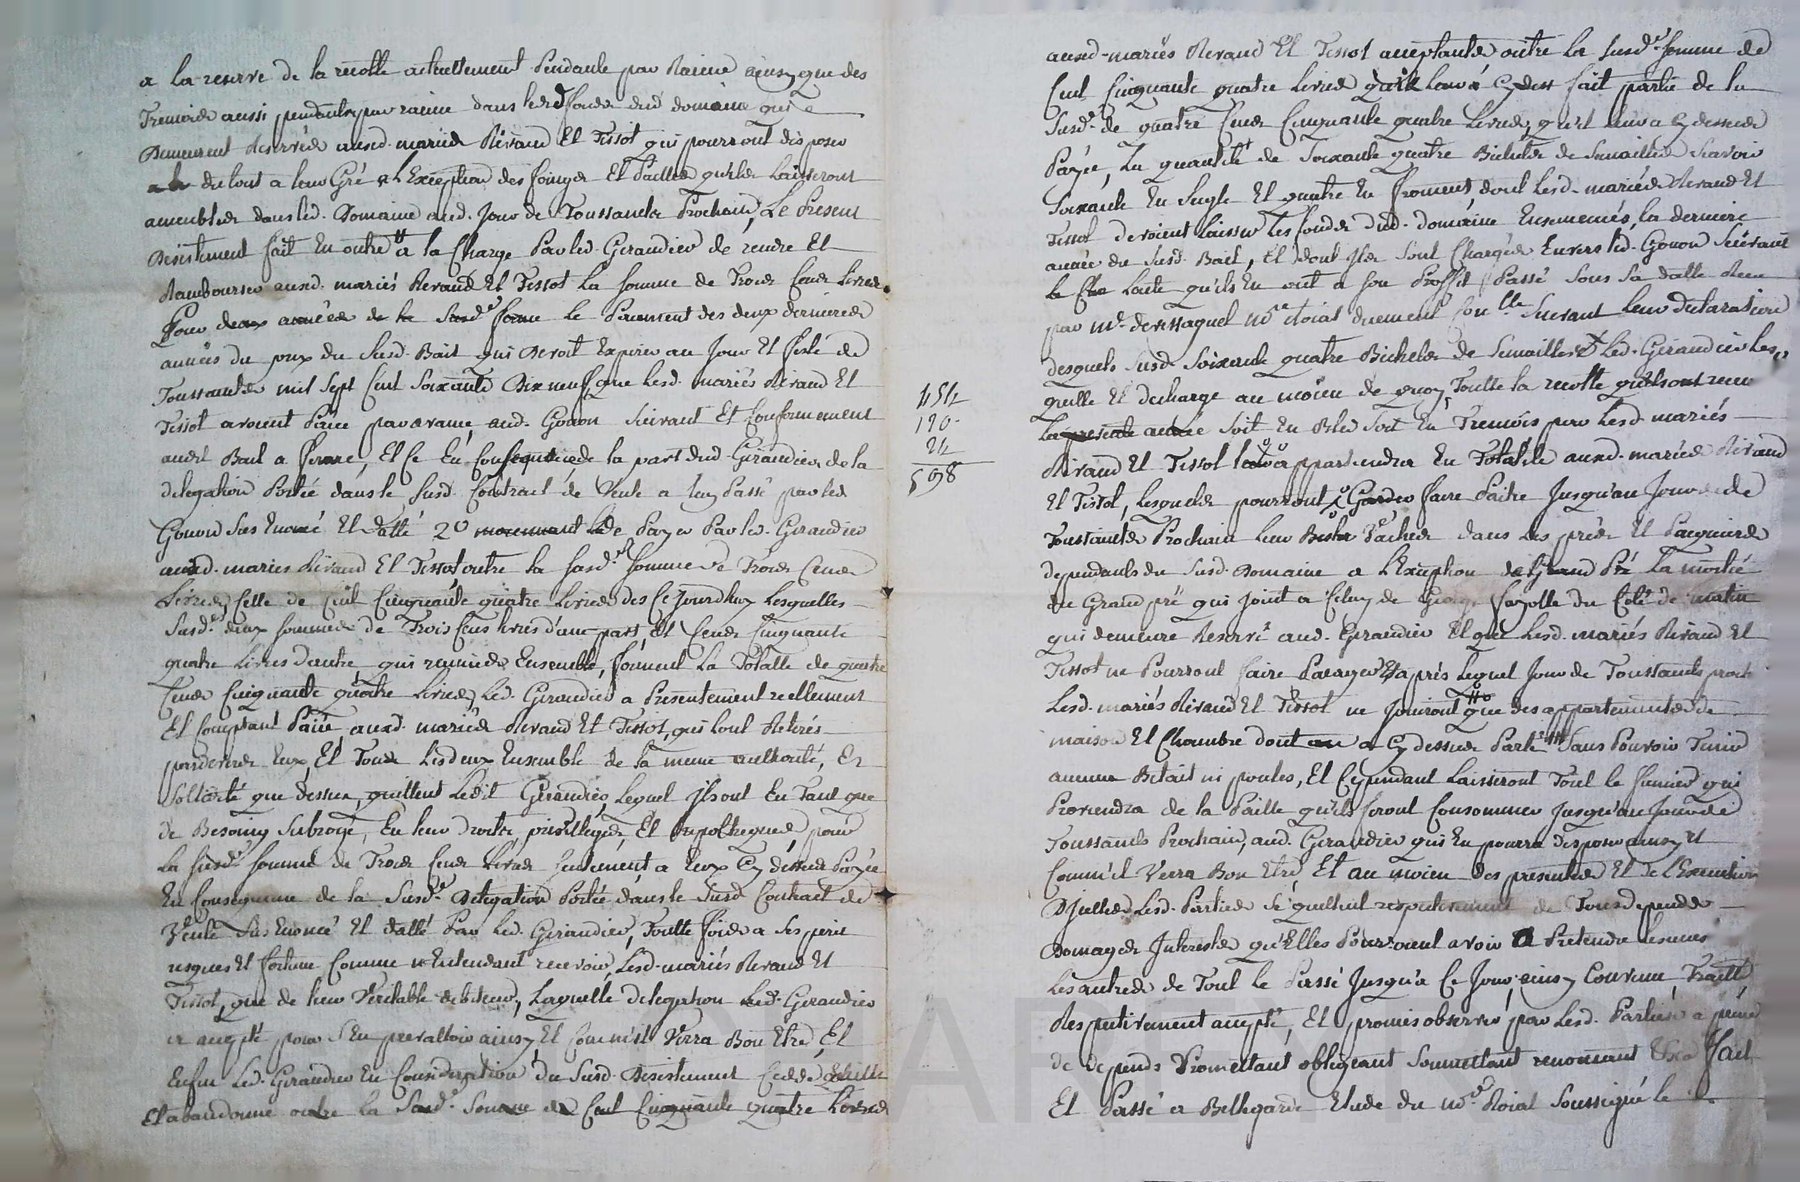 a la reserve de la recolte actuellement Pendante par Racine ainsy que des
Tremois aussi pendants par racine dans lesd fonds dud domaine qui
Demeurent reservés auxd. mariés Rivaud Et Tissot qui pourront disposer
du tout a leur Gré a L'Exception des foinges Et Pailles qu'ils Laisseront
ameublés dans led. Domaine aud. Jour de Toussaints Prochain, Le Present
Desistement fait En outre a la Charge Par led. Giraudier de rendre Et
Rambourser auxd. mariés Rivaud Et Tissot La somme de Trois Cens Livres
Pour le Paiement des deux dernieres
années du prix du Susd. Bail qui Devoit Expirer au Jour Et feste de
Toussaints mil Sept Cent Soixante Dix neuf, que lesd. mariés Rivaud Et
Tissot avoient Paié par avance, aud. Gonon Suivant Et Conformement
aud. Bail a ferme, Et Ce En Consequence de la part dud. Giraudier de la
delegation Portée dans le Susd. Contract de Vente a luy Passé par led
Gonon Sus Enoncé Et datté 2o de Payer Par led. Giraudier
auxd. mariés Rivaud Et Tissot outre la susd. Somme de Trois Cens
Livres, Celle de Cent Cinquante quatre Livres des Ce Jourdhuy Lesquelles
Susd. deux sommes de Trois Cens livres d'une part, Et Cent Cinquante
quatre Livres d'autre, qui reunies Ensemble, forment La Totalle de quatre
Cens Cinquante quatre Livres, Led. Giraudier a Presentement reellement
Et Comptant Paiée auxd. mariés Rivaud Et Tissot, qui l'ont Retirés
pardevers Eux, Et Tous Lesdeux Ensemble de la meme authorité, Et
Sollidité que dessus, quittent Ledit Giraudier, Lequel ils ont En Tant que
de Besoing Subrogé, En leur droits, privilleges, Et hypotheques, pour
La susd. somme de Trois Cens Livres Seulement a Eux Cy dessus Payée
En Consequence de la Susd. Delegation Portée dans le Susd Contract de
Vente Sus Enoncé Et datté Par Led. Giraudier, Toutte fois a Ses peril
risques Et fortune Comme Entendant recevoir Lesd. mariés Rivaud Et
Tissot, que de leur Veritable debiteur, Laquelle delegation Led. Giraudier
a accepté pour S'En prevalloir ainsy Et Comm'il Verra Bon Etre, Et
Enfin Led. Giraudier En Consideration du Susd. Desistement Cede, quitte
Et abandonne outre La Susd. Somme de Cent Cinquante quatre Livres
454
120
24
598
auxd. mariés Rivaud Et Tissot acceptants outre la susd. Somme de
Cent Cinquante quatre Livres qu'il leur a Cy dess fait partie de la
Susd. de quatre Cens Cinquante quatre Livres, qu'il leur a Cy dessus
Payée, La quantité de Soixante quatre Bichets de Semailles Scavoir
Soixante En Seigle Et quatre En froment, dont Lesd. mariés Rivaud Et
Tissot devoient Laisser Les fonds dud. domaine Ensemencés, la derniere
année du Susd. Bail, Et dont ils Sont Chargés Envers led. Gonon Suivant
L'acte qu'ils En ont a Son Proffit Passé Sous Sa datte Recu
par Me. not. roial duement Con.llé Suivant leur declaration
desquels Susd. Soixante quatre Bichets de Semailles Led. Giraudier Les
quitte Et decharge au moien de quoy, Toutte la recolte
Soit En Bled Soit En Tremois par Lesd mariés
Rivaud Et Tissot appartiendra En Totalité auxd. mariés Rivaud
Et Tissot, Lesquels pourront faire Paitre Jusqu'au Jour de
Toussaints Prochain Leur Vaches dans Les prés Et Paquiers
dependants du Susd. Domaine a L'Exception de La moitié
du Grand pré qui Joint a Celuy de fayolle du Coté de matin
qui demeure Reservé aud. Giraudier Et que Lesd. mariés Rivaud Et
Tissot ne Pourront faire Pacager, Et après Lequel Jour de Toussaints proch
Lesd. mariés Rivaud Et Tissot ne Jouiront que des appartements de
maison Et Chambre dont a Cy dessus Parlé Sans Pouvoir Tenir
aucune Betail ni poules, Et Cependant Laisseront Tout le fumier qui
Proviendra de la Paille qu'ils feront Consommer Jusqu'au Jour de
Toussaints Prochain, aud. Giraudier qui En pourra disposer ainsy Et
Comm'il Verra Bon Etre, Et au moien Des presentes Et De L'Execution
D'Icelles Lesd. Parties Se quittent respectivement de Tous depends
Domages Interests qu'Elles Pourroient avoir a Pretendre Les unes
Les autres de Tout le Passé Jusqu'a Ce Jour, ainsy Convenu, Traitté
Respectivement accepté, Et promis observer par Lesd. Parties a peine
de depends Promettant obligeant Soumettant renonçant &a Fait
Et Passé a Bellegarde Etude du not. Roial Soussigné le